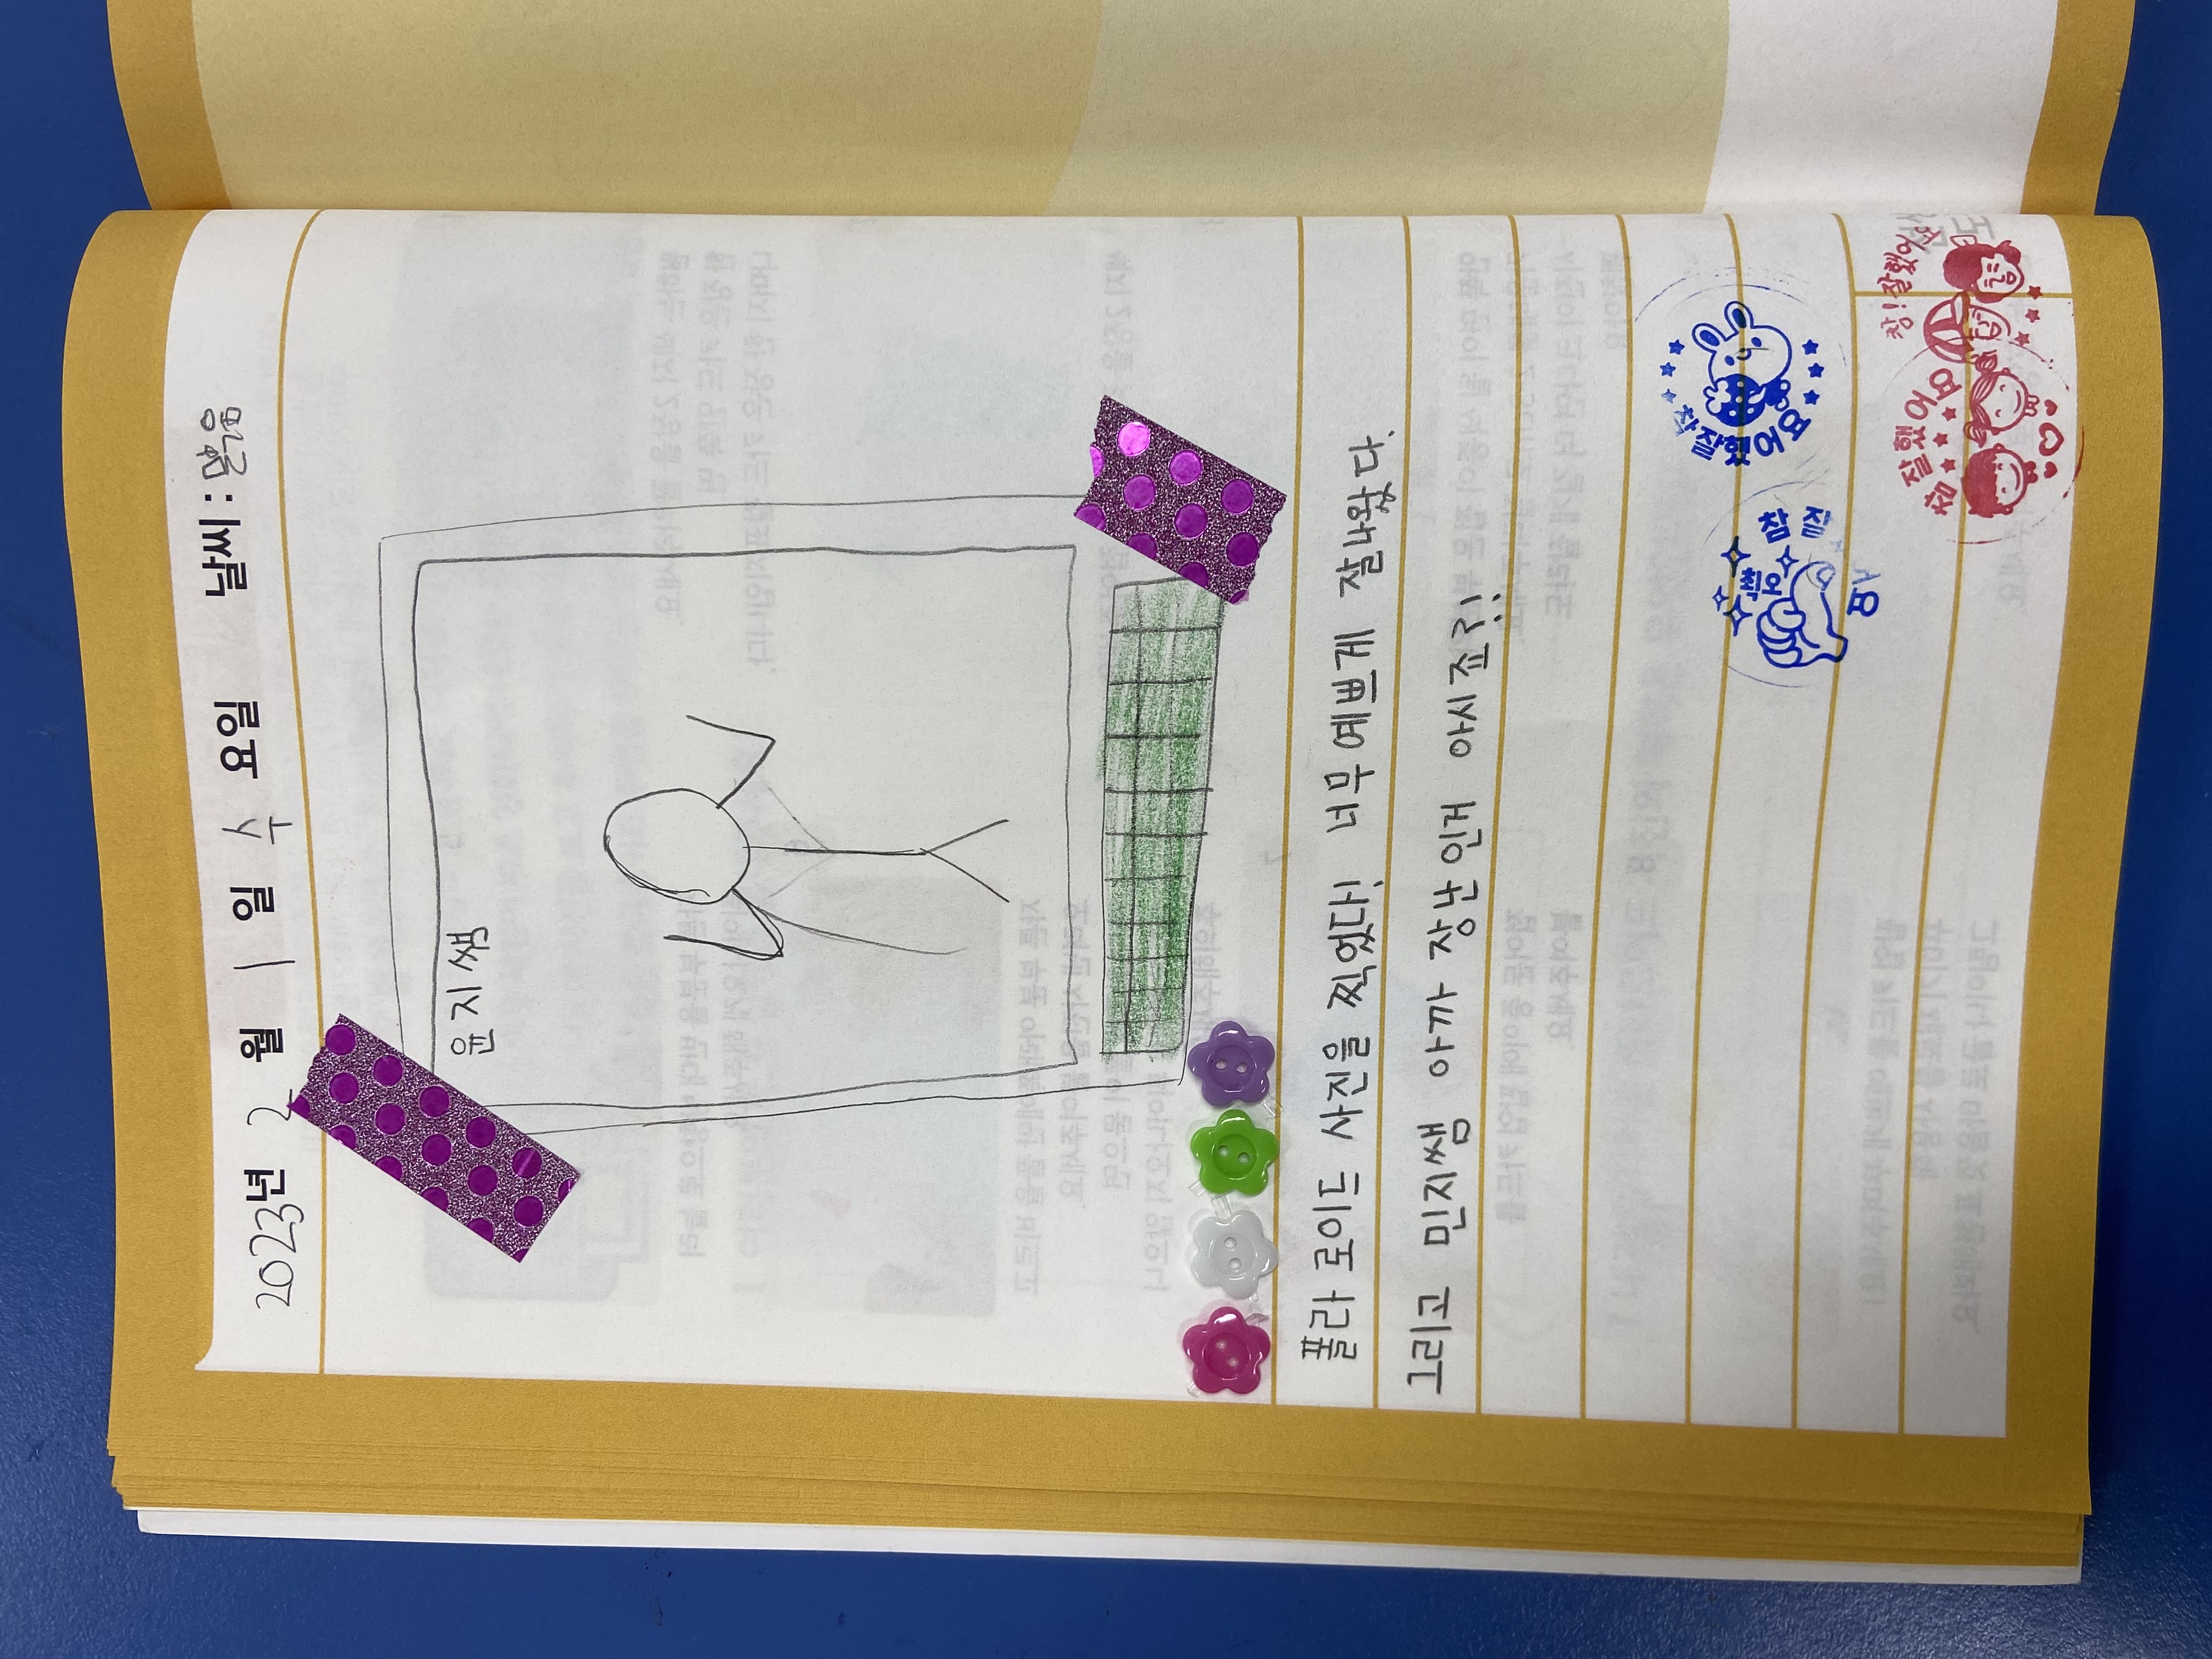 2023년 2 월 1 일 수 요일 날씨 : 맑음
윤지쌤
폴라로이드 사진을 찍었다! 너무 예쁘게 잘나왔다.
그리고 민지쌤 아까 장난인거 아시죠?!
참잘했어요
최고
참 잘
참 잘했어요
참! 잘했어요